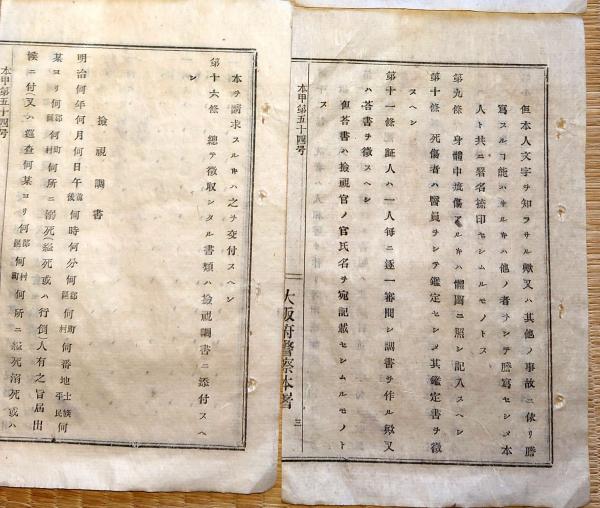 但本人文字ヲ知ラサル歟又ハ其他ノ事故ニ依リ謄
寫スルコ能ハサルキハ他ノ者ヲシテ謄寫セシメ本
人ト共ニ署名捺印セシムルモノトス
第九條 身體中疵傷アルキハ備圖ニ照シ記入スヘシ
第十條 死傷者ハ醫員ヲシテ鑑定セシメ其鑑定書ヲ徵
スヘシ
第十一條 証人ハ一人每ニ逐一審問シ調書ヲ作ル歟又
ハ答書ヲ徵スヘシ
但答書ハ撿視官ノ官氏名ヲ宛記載セシムルモノト
ス
本甲第五十四号
大阪府警察本署
三
本ヲ請求スルキハ之ヲ交付スヘシ
第十六條 總テ徵収シタル書類ハ撿視調書ニ添付スヘ
シ
撿視調書
明治何年何月何日午前後何時何分何郡區何町村何番地士族平民何
某ヨリ何郡區何町村何所ニ溺死(縊死或ハ行倒人有之旨届出
候ニ付(又ハ巡査何某ヨリ何郡區何町村何所ニ縊死溺死或ハ
本甲第五十四号